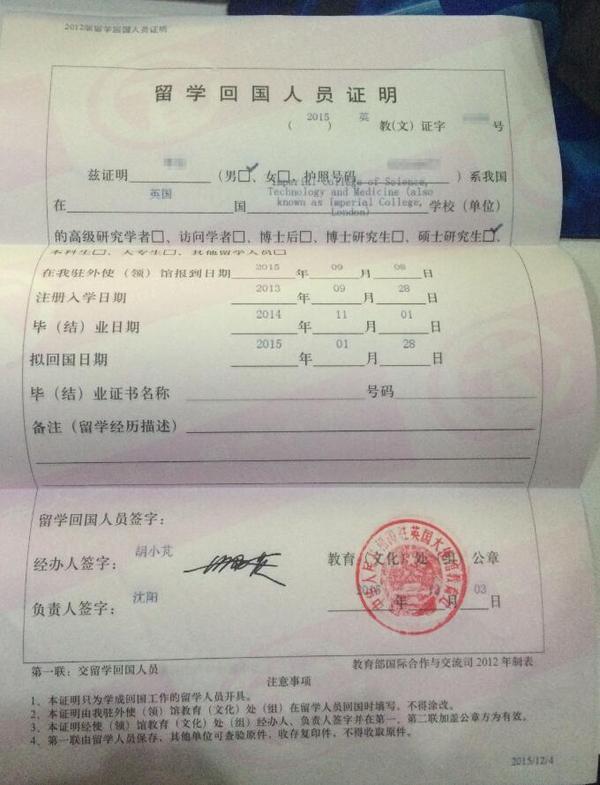 2012版留学回国人员证明
留学回国人员证明
（2015）英教（文）证字 号
兹证明 （男□✓、女□，护照号码 ）系我国
在 英国 国 Imperial College of Science, Technology and Medicine (also known as Imperial College, London) 学校（单位）
的高级研究学者□、访问学者□、博士后□、博士研究生□、硕士研究生□✓、
本科生□、大专生□、其他留学人员□
在我驻外使（领）馆报到日期 2015 年 09 月 08 日
注册入学日期 2013 年 09 月 28 日
毕（结）业日期 2014 年 11 月 01 日
拟回国日期 2015 年 01 月 28 日
毕（结）业证书名称 号码
备注（留学经历描述）
留学回国人员签字：
经办人签字： 胡小芃 教育（文化）处（组）公章
负责人签字： 沈阳 年 月 03 日
第一联：交留学回国人员 教育部国际合作与交流司 2012 年制表
注意事项
1、本证明只为学成回国工作的留学人员开具。
2、本证明由我驻外使（领）馆教育（文化）处（组）在留学人员回国时填写，不得涂改。
3、本证明经使（领）馆教育（文化）处（组）经办人、负责人签字并在第一、第二联加盖公章方为有效。
4、第一联由留学人员保存，其他单位可查验原件，收存复印件，不得收取原件。
2015/12/4